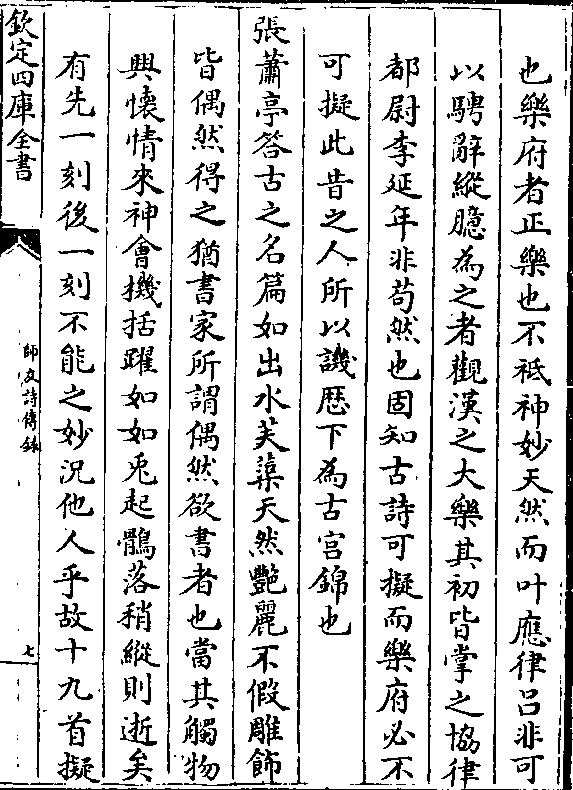 也樂府者正樂也不祗神妙天然而叶應律吕非可
以騁辭縱臆為之者觀漢之大樂其初皆掌之協律
都尉李延年非苟然也固知古詩可擬而樂府必不
可擬此昔之人所以譏歷下為古宫錦也
張蕭亭答古之名篇如出水芙蕖天然艷麗不假雕飾
皆偶然得之猶書家所謂偶然欲書者也當其觸物
興懷情來神會機括躍如如兎起鶻落稍縱則逝矣
有先一刻後一刻不能之妙況他人乎故十九首擬
欽定四庫全書
師友詩傳録
七